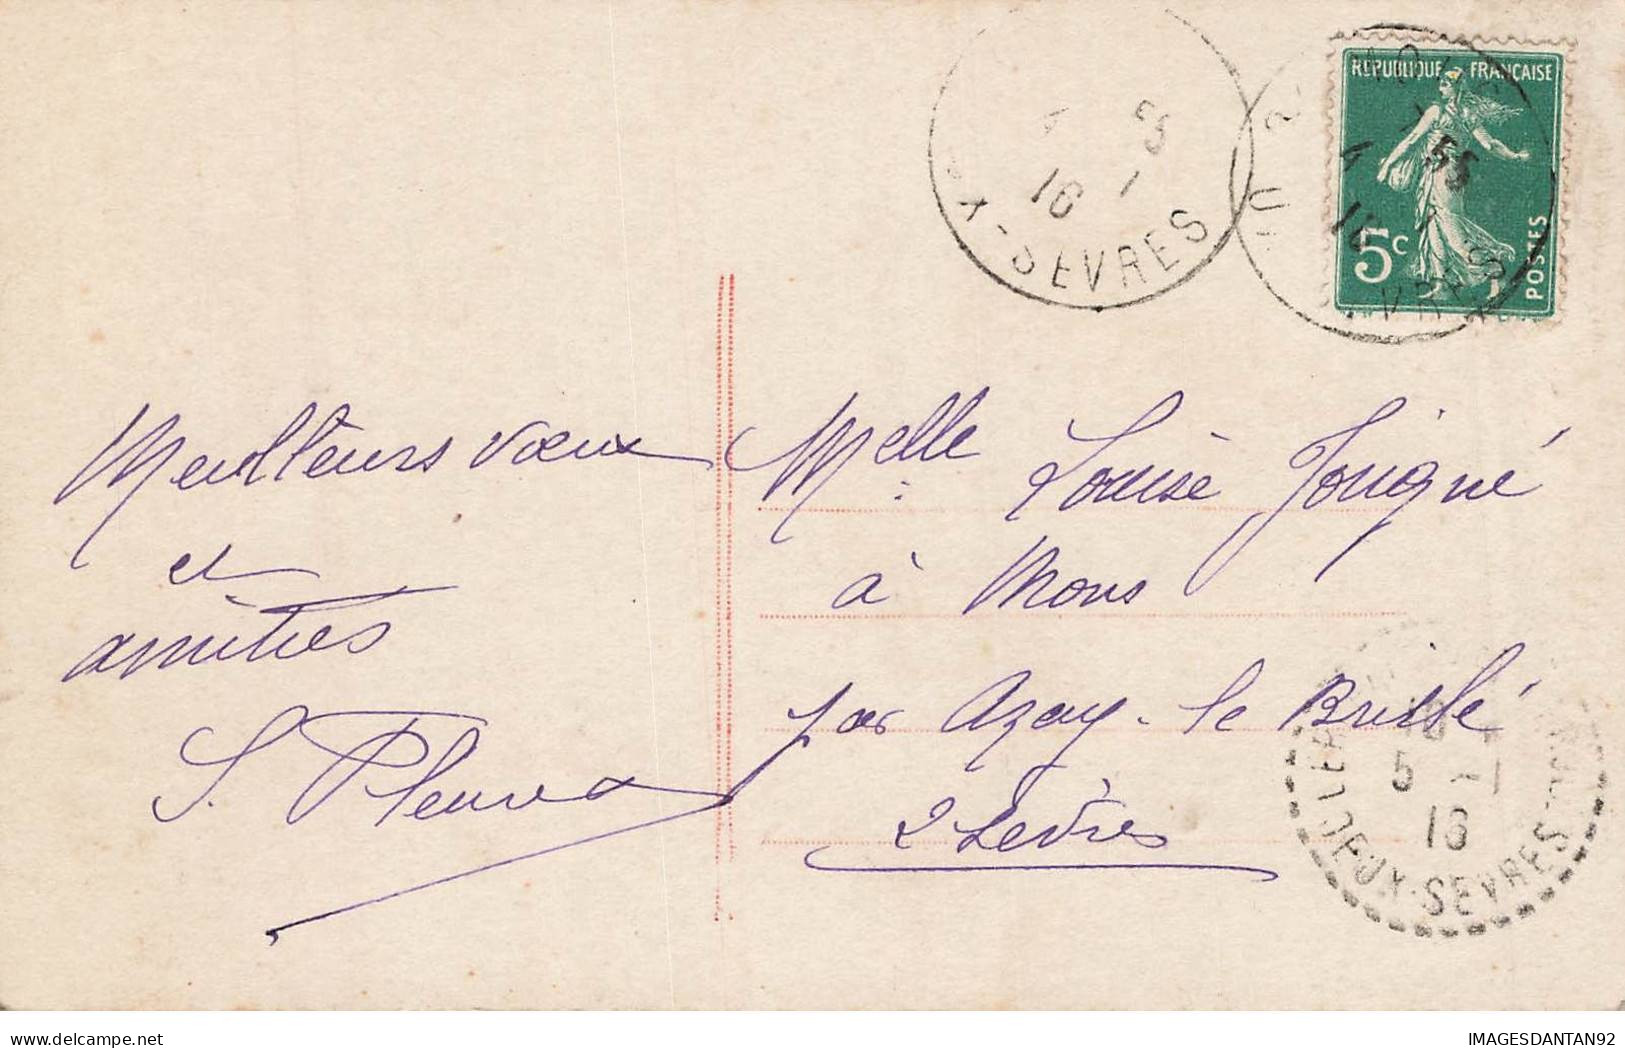 REPUBLIQUE FRANÇAISE
5c
POSTES
X-SEVRES
16
Meilleurs vœux
et
amitiés
Melle Louise Jougné
à Mons
par Azay-le Brûlé
2 Sèvres
5 -1
16
DEUX-SEVRES
IMAGESDANTAN92